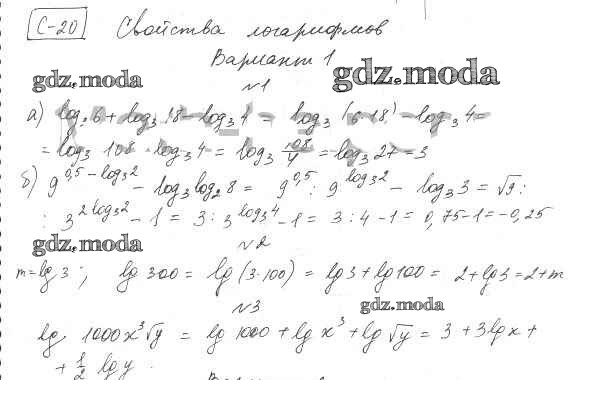 С-20 Свойства логарифмов
Вариант 1
gdz.moda gdz.moda
№1
а) log₃6 + log₃18 - log₃4 = log₃(6·18) - log₃4 =
= log₃108 - log₃4 = log₃ 108/4 = log₃27 = 3
б) 9^(0,5 - log₃2) - log₃log₂8 = 9^0,5 : 9^log₃2 - log₃3 = √9 :
: 3^(2log₃2) - 1 = 3 : 3^log₃4 - 1 = 3 : 4 - 1 = 0,75 - 1 = -0,25
gdz.moda №2
m = lg3; lg300 = lg(3·100) = lg3 + lg100 = 2 + lg3 = 2 + m
№3 gdz.moda
lg 1000x³√y = lg1000 + lgx³ + lg√y = 3 + 3lgx +
+ 1/2 lgy.